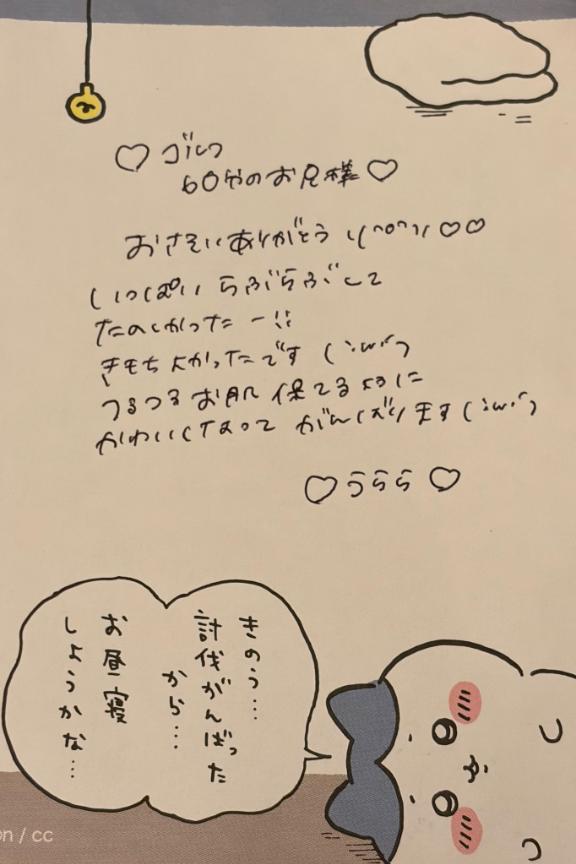 ♡ ゴルフ
60分のお兄様 ♡
おさそいありがとう \(^o^)/ ♡♡
いっぱい らぶらぶして
たのしかったー!!
きもちよかったです (´;ω;`)
つるつるお肌 保てるように
かわいくなって がんばります (´;ω;`)
♡ うらら ♡
きのう…
討伐がんばった
から…
お昼寝
しようかな…
on / cc